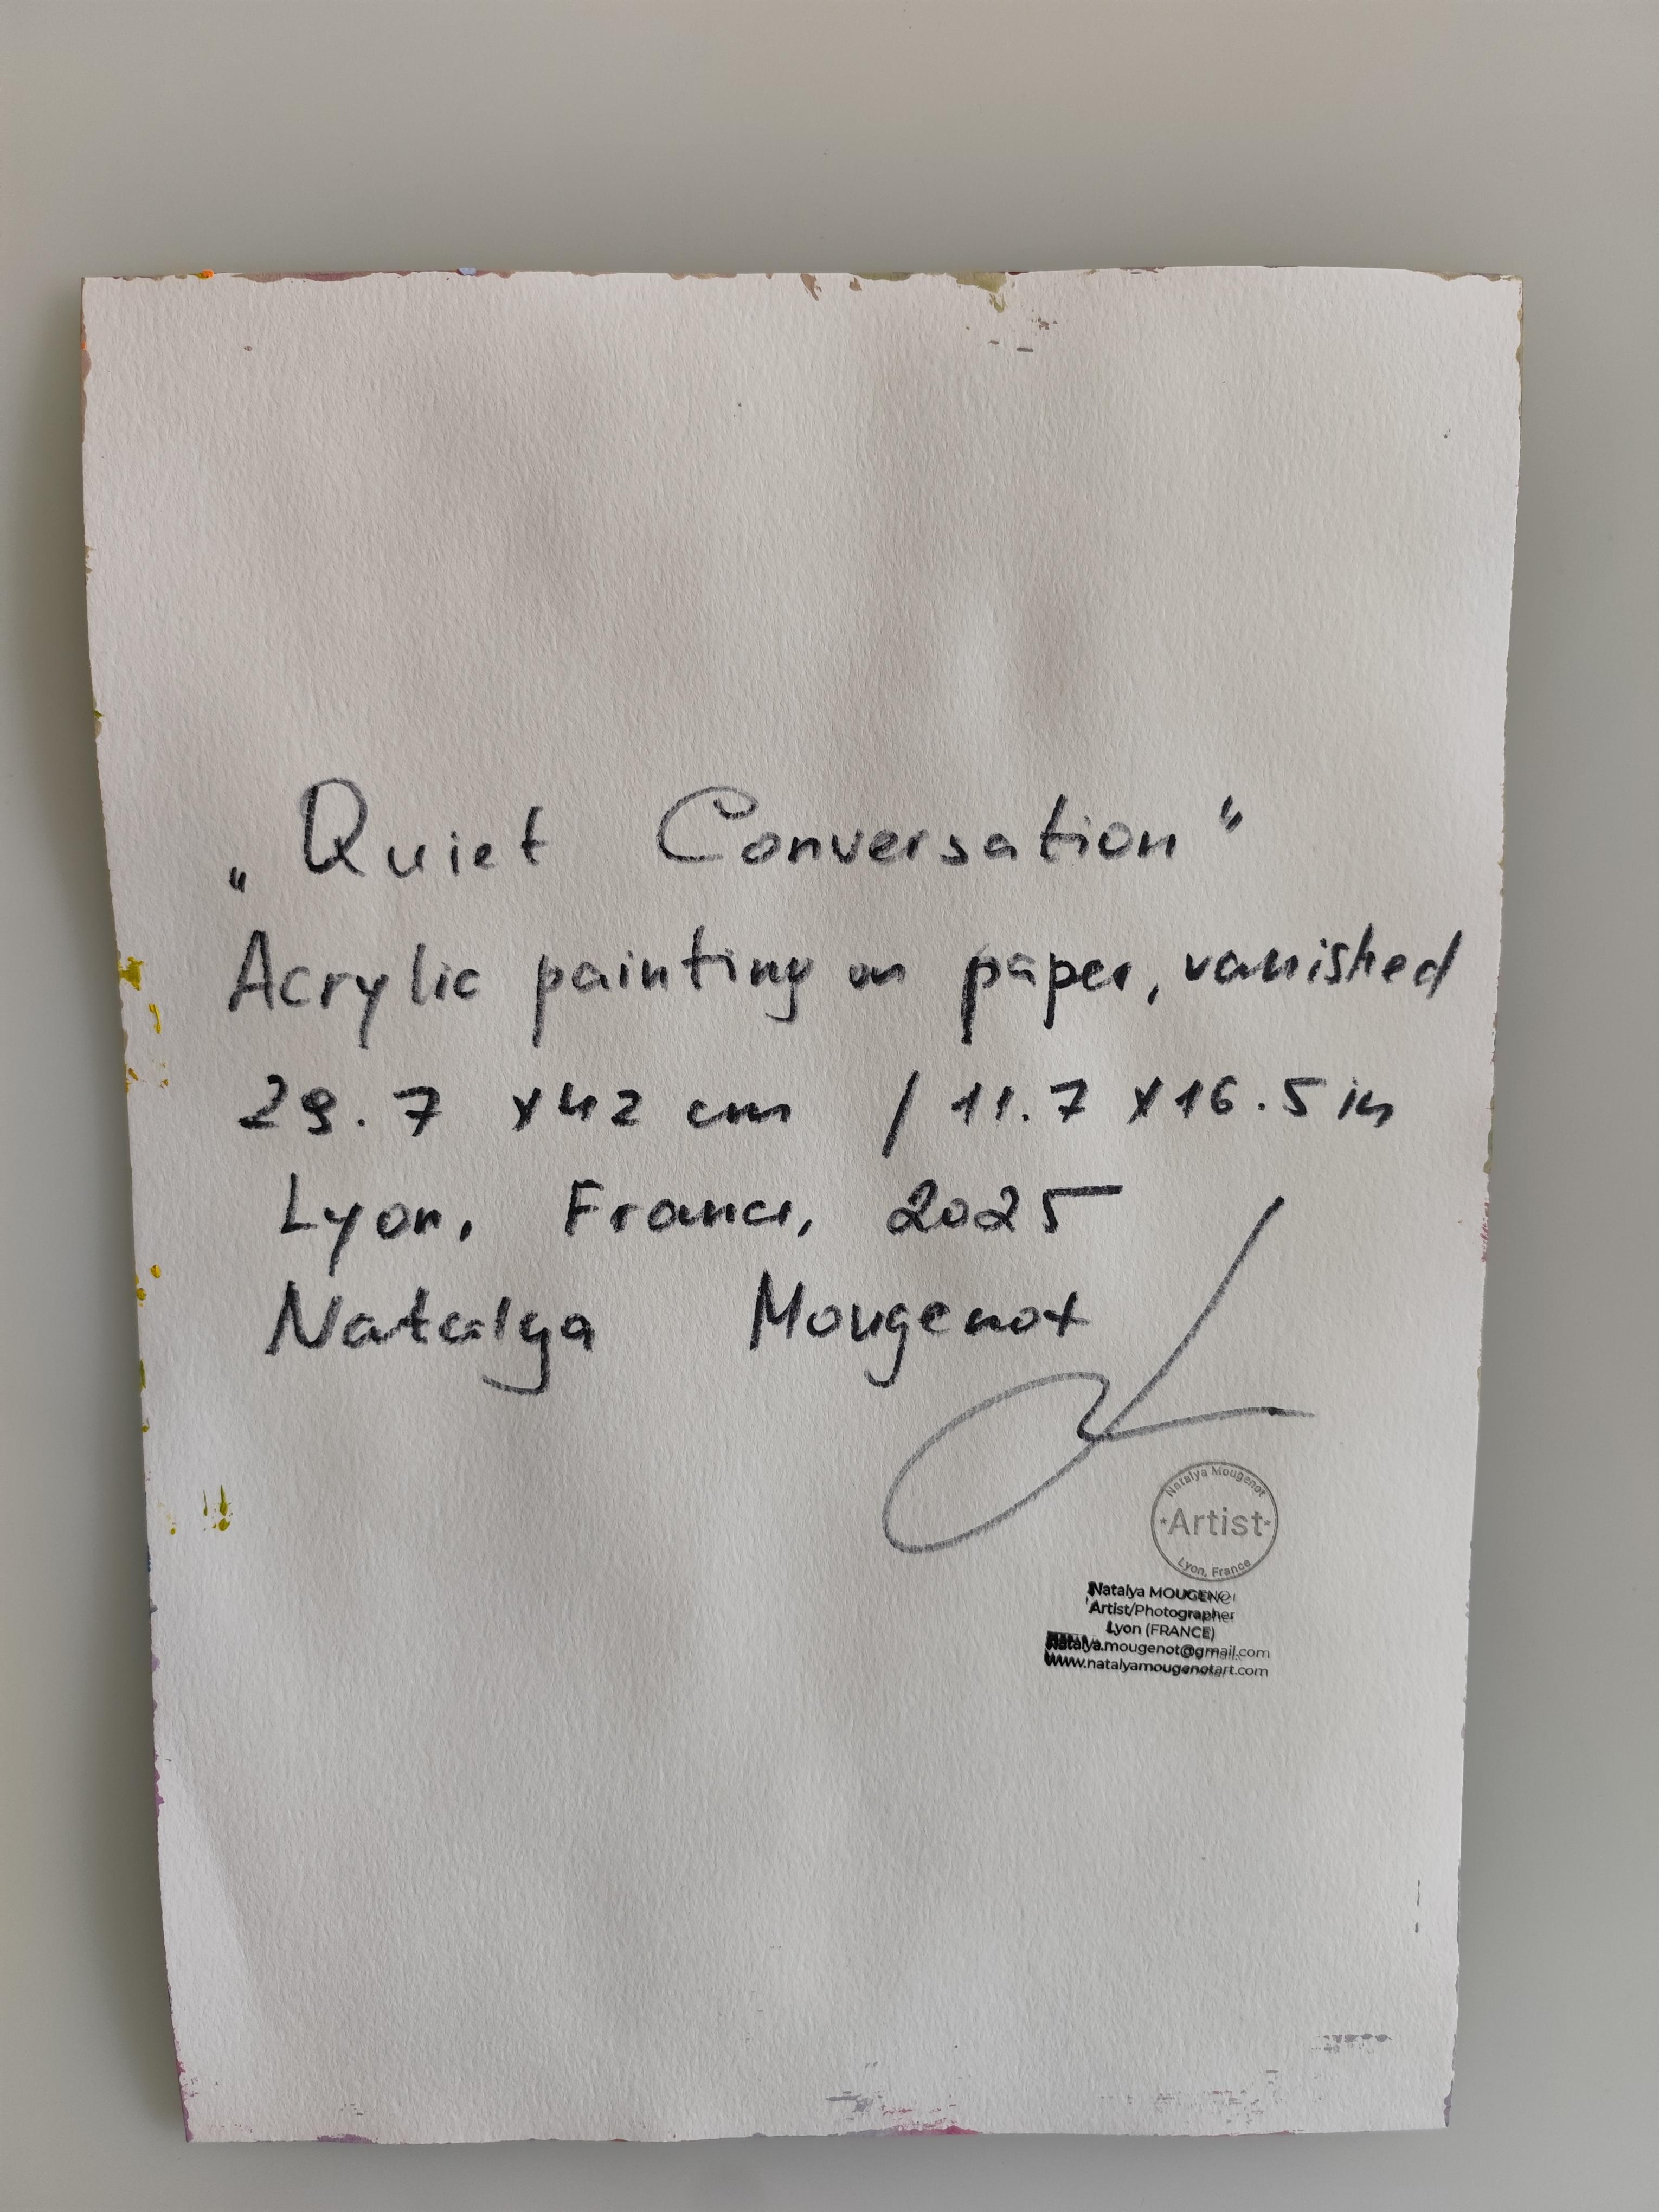 „Quiet Conversation"
Acrylic painting on paper, vanished
29.7 x42 cm / 11.7 x16.5 in
Lyon, France, 2025
Natalya Mougenot
Natalya Mougenot
*Artist*
Lyon, France
Natalya MOUGENOT
Artist/Photographer
Lyon (FRANCE)
Natalya.mougenot@gmail.com
www.natalyamougenotart.com